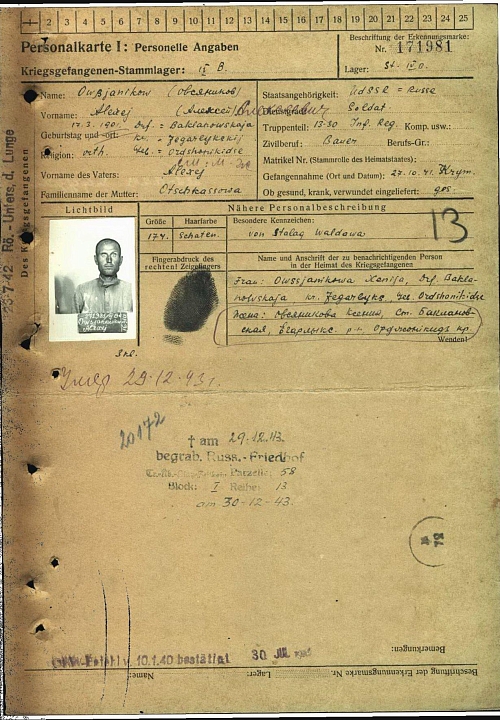 2 3 4 5 6 7 8 9 10 11 12 13 14 15 16 17 18 19 20 21 22 23 24 25
Personalkarte I: Personelle Angaben
Beschriftung der Erkennungsmarke:
Nr. 171981
Kriegsgefangenen-Stammlager: IV B.
Lager: St. IV B.
Des Kriegsgefangenen
Name: Owsjanikow (Овсяников)
Vorname: Alexej (Алексей)
Geburtstag und -ort: 17.3. Drf. = Baklanowskaja
Kr. = Jegarlykskij
Religion: orth. Geb. = Ordshonikidse
Vorname des Vaters: Alexej
Familienname der Mutter: Otschkassowa
Staatsangehörigkeit: UdSSR = Russe
Dienstgrad: Soldat
Truppenteil: 1330 Inf. Reg. Komp. usw.:
Zivilberuf: Bauer Berufs-Gr.:
Matrikel Nr. (Stammrolle des Heimatstaates):
Gefangennahme (Ort und Datum): 27.10.41. Krym.
Ob gesund, krank, verwundet eingeliefert: ges.
Lichtbild
Nähere Personalbeschreibung
Größe
Haarfarbe
Besondere Kennzeichen:
174.
von Stalag Waldowa
13
Fingerabdruck des
rechten! Zeigefingers
Name und Anschrift der zu benachrichtigenden Person
in der Heimat des Kriegsgefangenen
Frau: Owssjanikowa Xenija, Drf. Bakla-
nowskaja Kr. Jegarlyks. Geb. Ordshonikidse
Жена: Овсяникова Ксения, Ст. Баклановс-
кая, Егорлыкс. р-н, Орджоникидз кр.
Wenden!
23-7-42 Rö.-Unters. d. Lunge
Умер 29-12-43г.
20172
† am 29.12.43.
begrab. Russ.-Friedhof
Parzelle: 58
Block: I Reihe: 13
am 30-12-43.
10.1.40 bestätigt
30 JUL
Bemerkungen:
Beschriftung der Erkennungsmarke Nr.
Lager:
Name: